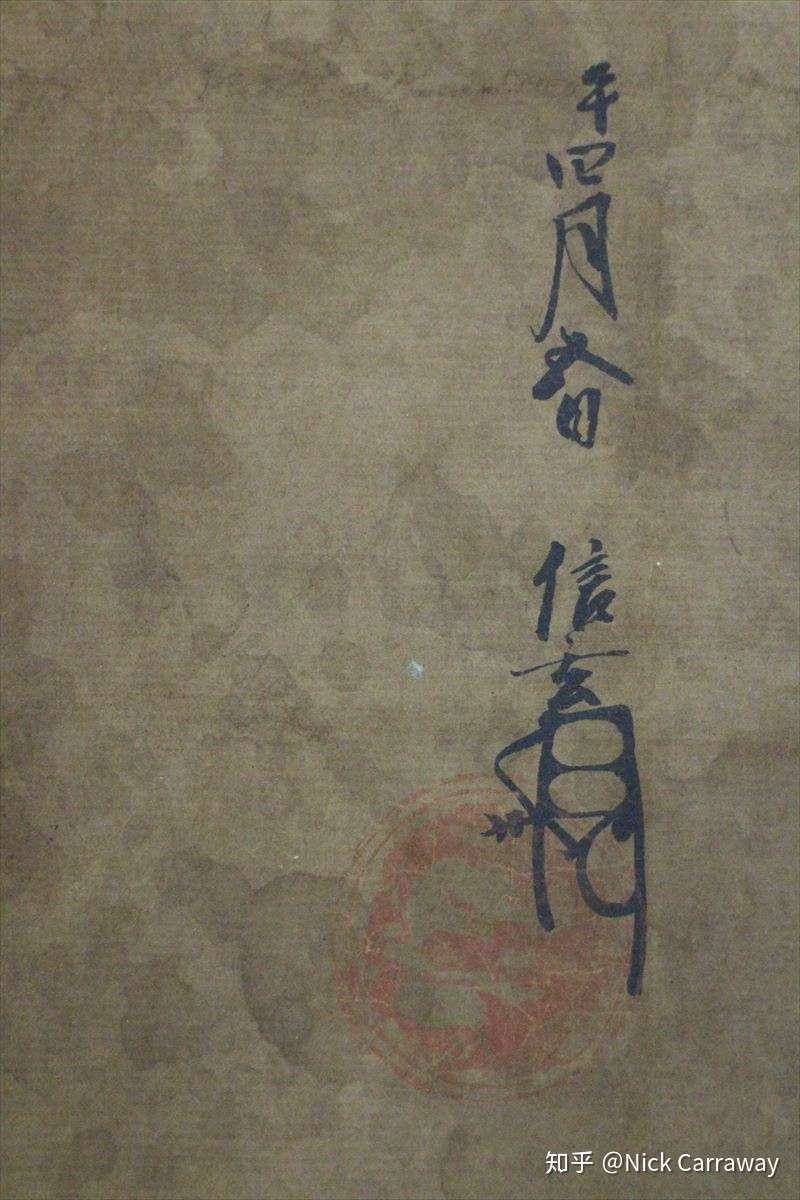 午四月五日
信玄
知乎 @Nick Carraway